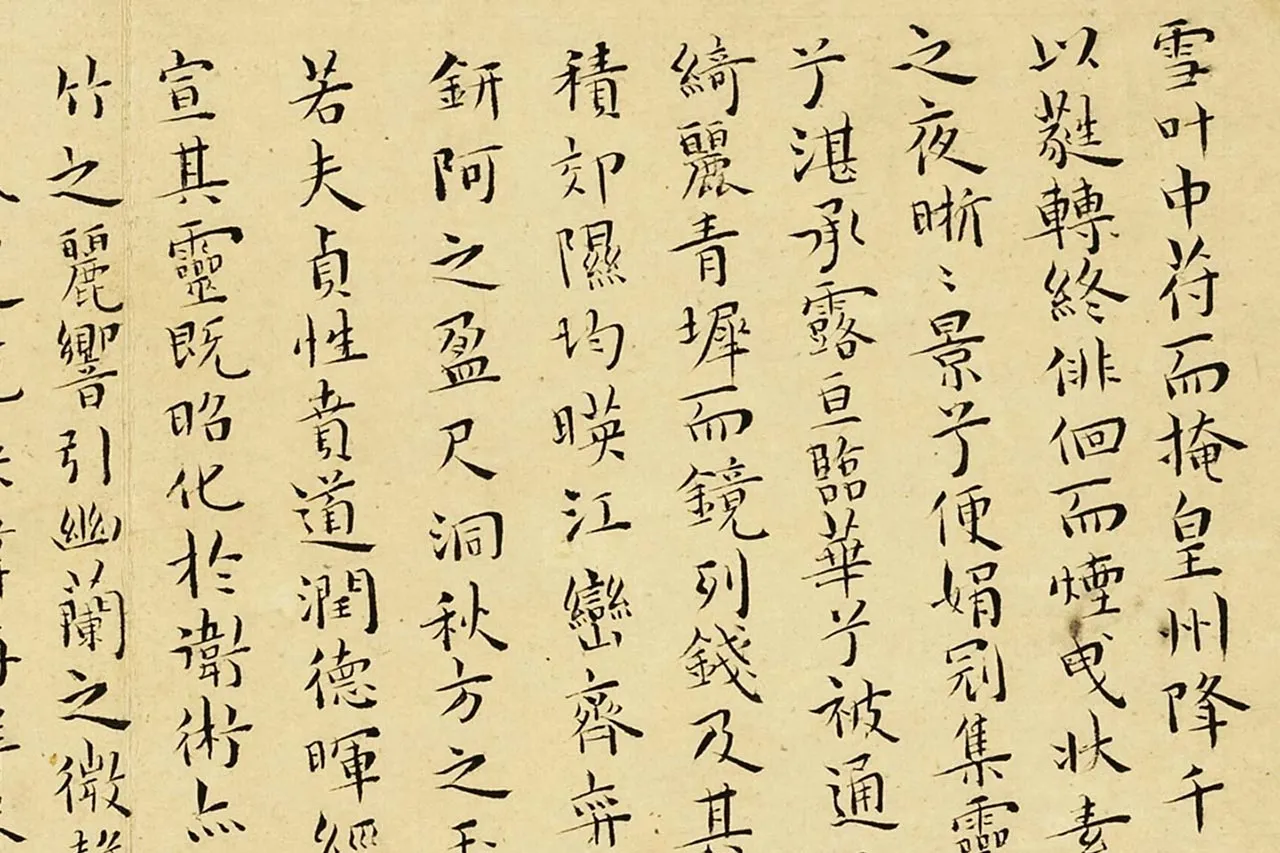 雪叶中苻而掩皇州降千
以蕤轉終俳佪而煙曳状素
之夜晣〻景兮便娟冠集靈
兮湛承露亘臨華兮被通
綺麗青墀而鏡列錢及其
積郊隰均暎江巒齊弈
鈃阿之盈尺洞秋方之
若夫貞性賁道潤德暉經
宣其靈既昭化於衛術亦
竹之麗響引幽蘭之微